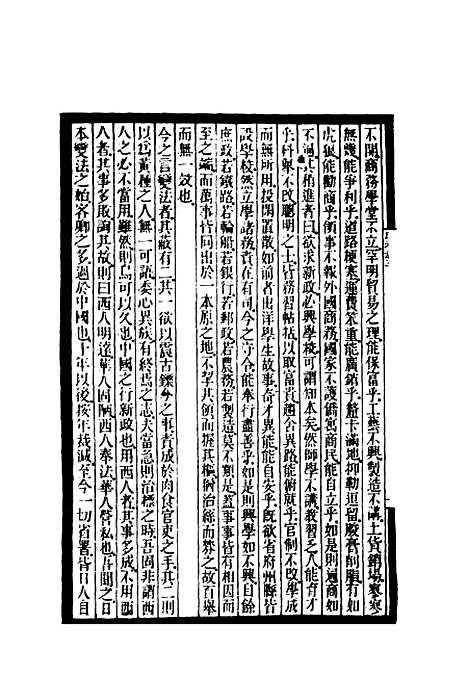 不開商務學堂不立罕明貿易之理能保富乎工藝不興製造不講土貨銷場寥寥
無幾能爭利乎道路梗塞運費笨重能廣銷乎釐卡滿地抑勒逗留朘膏削脂有如
虎狼能勸商乎領事不報外國商務國家不護僑寓商民能自立乎如是則通商如
不通其稍進者曰欲求新政必興學校可謂知本矣然師學不講教習乏人能育才
乎科舉不改聰明之士皆務習帖括以取富貴趨舍異路能俯就乎官制不改學成
而無所用投閒置散如前者出洋學生故事奇才異能能自安乎既欲省府州縣皆
設學校然立學諸務責在有司今之守令能奉行盡善乎如是則興學如不興自餘
庶政若鐵路若輪船若銀行若郵政若農務若製造莫不類是蓋事事皆有相因而
至之端而萬事皆同出於一本原之地不挈其領而握其樞猶治絲而棼之故百舉
而無一效也
今之言變法者其蔽有二其一欲以震古鑠今之事責成於肉食官吏之手其二則
以爲黃種之人無一可語委心異族有終焉之志夫當急則治標之時吾固非謂西
人之心不當用雖然則烏可以久也中國之行新政也用西人者其事多成不用西
人者其事多敗詢其故則曰西人明達華人固陋西人奉法華人營私也吾聞之日
本變法之始客卿之多過於中國也十年以後按年裁減至今一切省署皆日人自